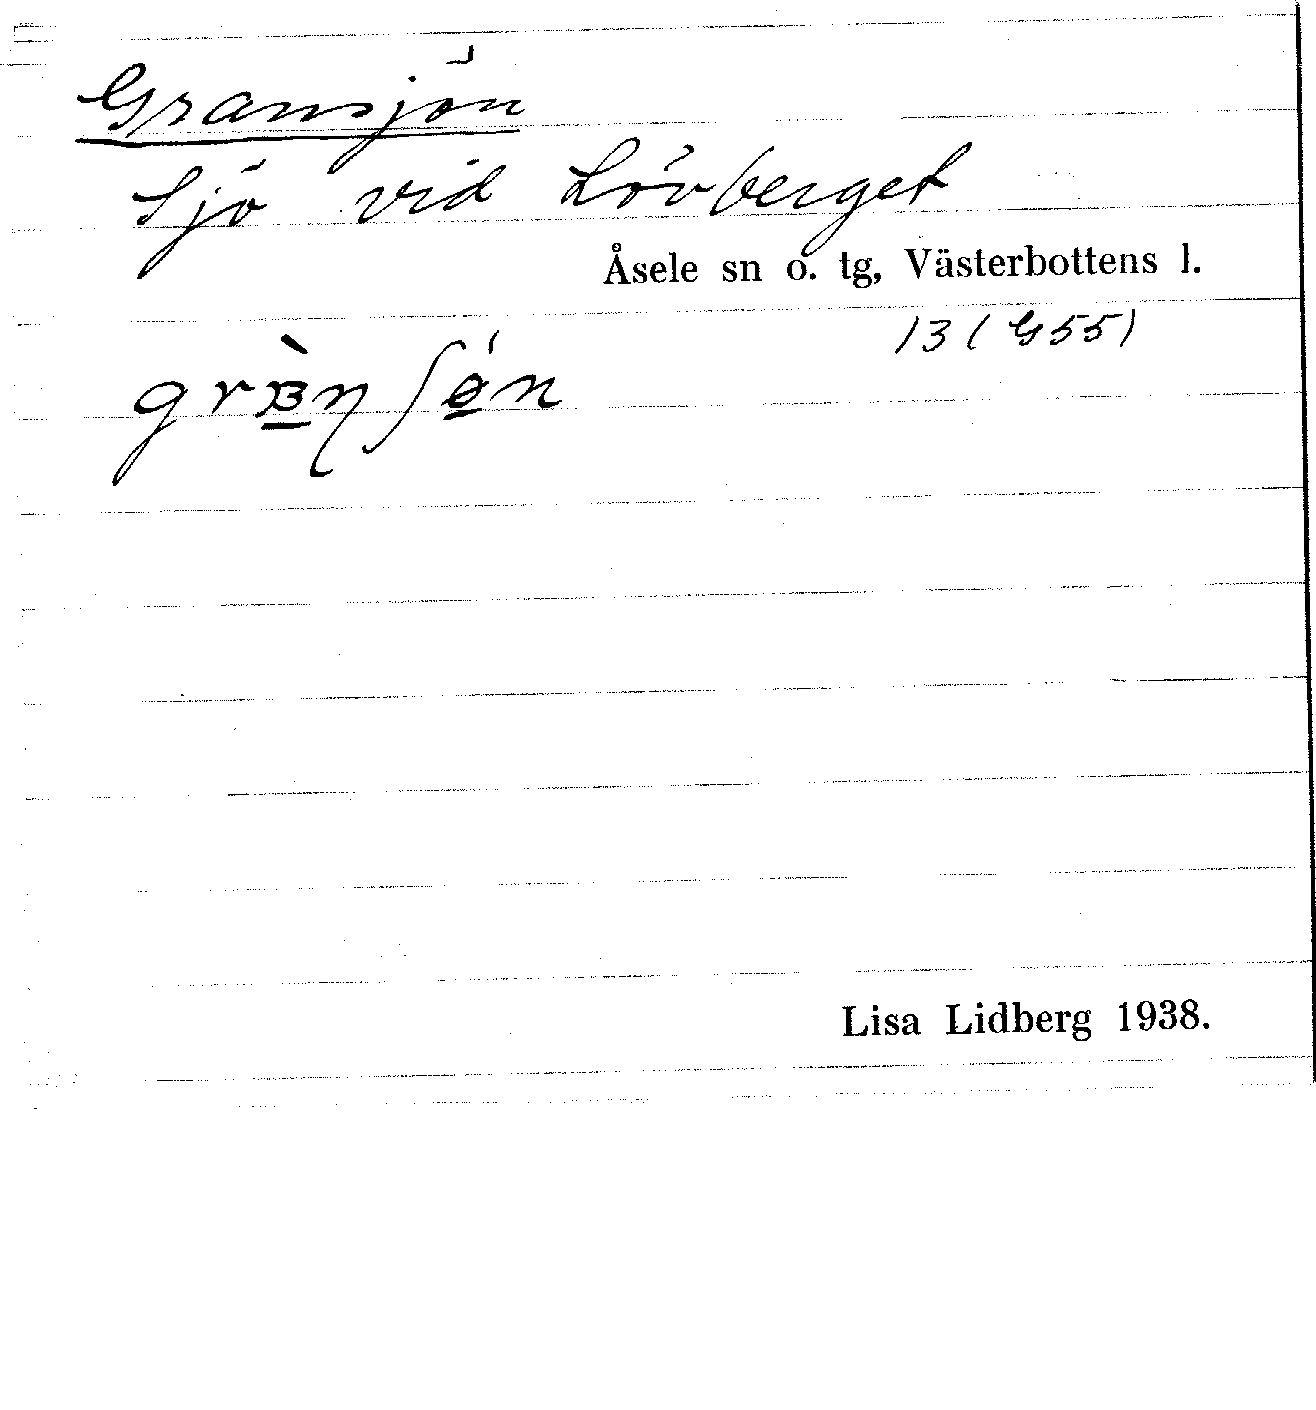 Gransjön
Sjö vid Lövberget
Åsele sn o. tg, Västerbottens l.
13 (G55)
Lisa Lidberg 1938.